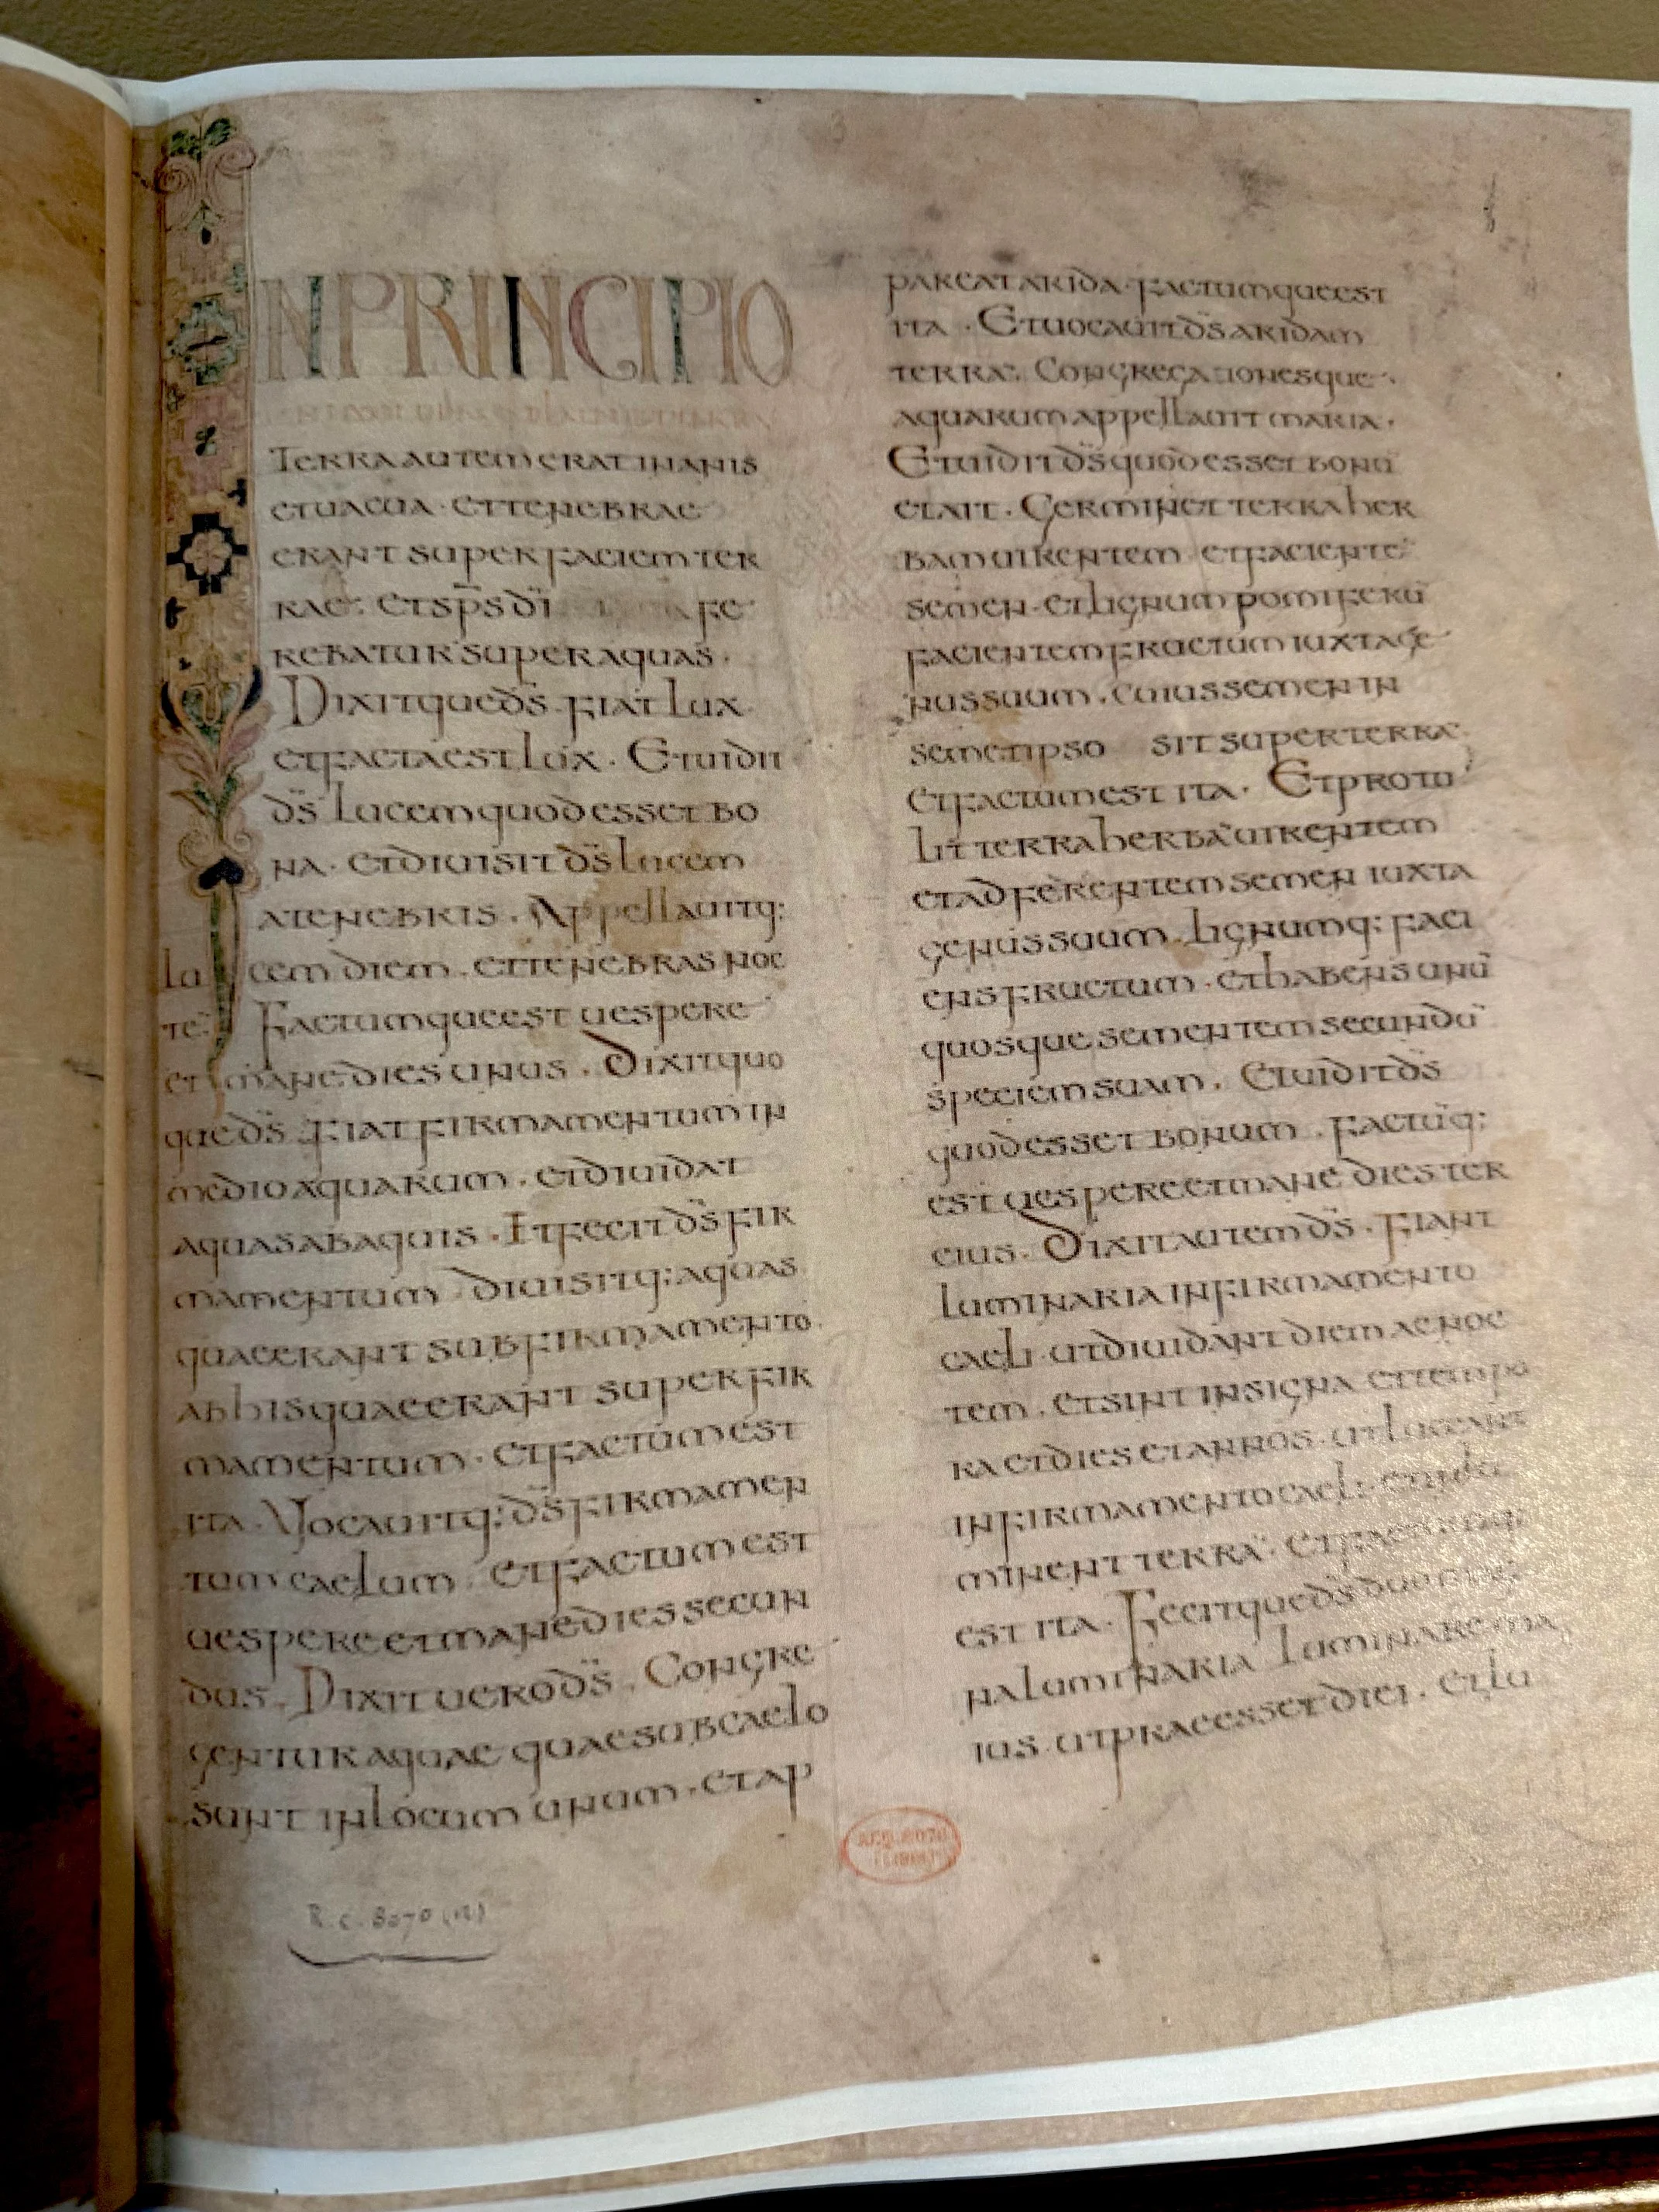 NPRINCIPIO
Terra autem erat inanis
et uacua · et tenebrae
erant super faciem ter
rae · et sp̄s dī fe
rebatur super aquas ·
Dixitque d̄s · fiat lux
et facta est lux · Et uidit
d̄s lucem quod esset bo
na · et diuisit d̄s lucem
a tenebris · Appellauitq:
lucem diem · et tenebras noc
te · Factumque est uespere
et mane dies unus · Dixit quo
que d̄s · fiat firmamentum in
medio aquarum · et diuidat
aquas ab aquis · Et fecit d̄s fir
mamentum diuisitq: aquas
quae erant sub firmamento
ab his quae erant super fir
mamentum · et factum est
ita · Vocauitq: d̄s firmamen
tum caelum · et factum est
uespere et mane dies secun
dus · Dixit uero d̄s · Congre
gentur aquae quae sub caelo
sunt in locum unum · et ap
pareat arida · factumque est
ita · Et uocauit d̄s aridam
terrā · Congregationesque
aquarum appellauit maria ·
Et uidit d̄s quod esset bonū
et ait · Germinet terra her
bam uirentem et facientē
semen · et lignum pomiferū
facientem fructum iuxta ge
nus suum · cuius semen in
semetipso sit super terrā
et factum est ita · Et protu
lit terra herbā uirentem
et adferentem semen iuxta
genus suum · lignumq: faci
ens fructum · et habens unū
quosque sementem secundū
speciem suam · Et uidit d̄s
quod esset bonum · factūq:
est uespere et mane dies ter
cius · Dixit autem d̄s · fiant
luminaria in firmamento
caeli · ut diuidant diem ac noc
tem · et sint in signa et tempo
ra et dies et annos · ut luceant
in firmamento caeli et inlu
minent terrā · et factum
est ita · Fecitque d̄s duo mag
na luminaria luminare ma
ius · ut praeesset diei · et lu
R.C. 8070 (12)